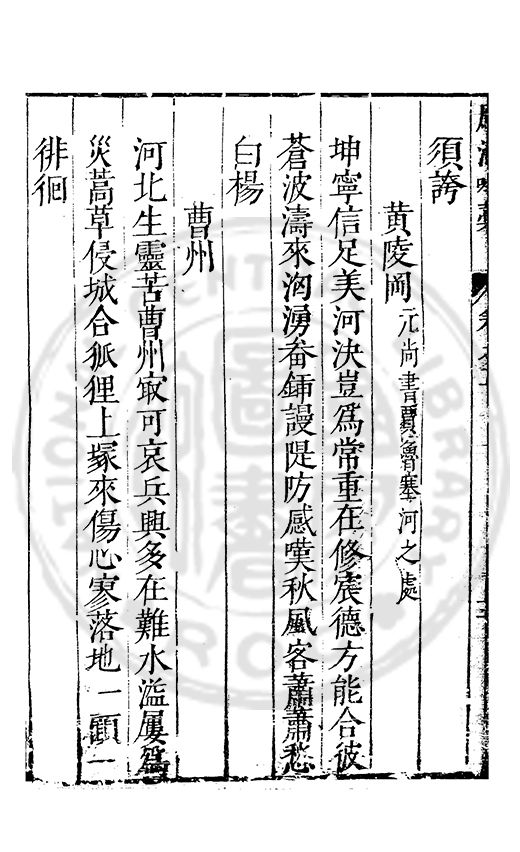 須誇
黄陵岡 元尚書賈魯塞河之處
坤寧信足美河決豈爲常重在修宸德方能合彼
蒼波濤來洶湧畚鍤謾隄防感嘆秋風客蕭蕭愁
白楊
曹州
河北生靈苦曹州㝡可哀兵興多在難水溢屢爲
災蒿草侵城合狐狸上塚來傷心寥落地一顧一
徘徊